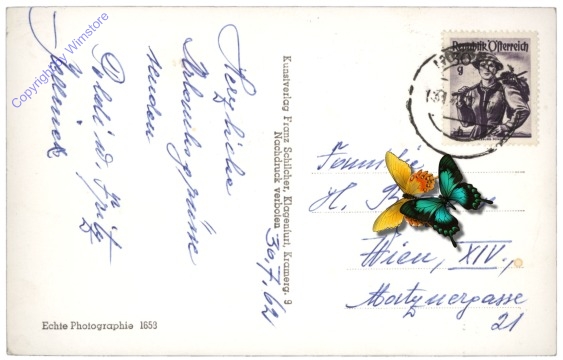 Copyright by Winstore
Herzliche
Urlaubsgrüsse
senden
Poldi u. Fritz
30.7.62
Kunstverlag Franz Schilcher, Klagenfurt, Kramerg. 9
Nachdruck verboten
Echte Photographie 1653
Republik Österreich
Familie
H.
Wien, XIV.,
Matznergasse
21